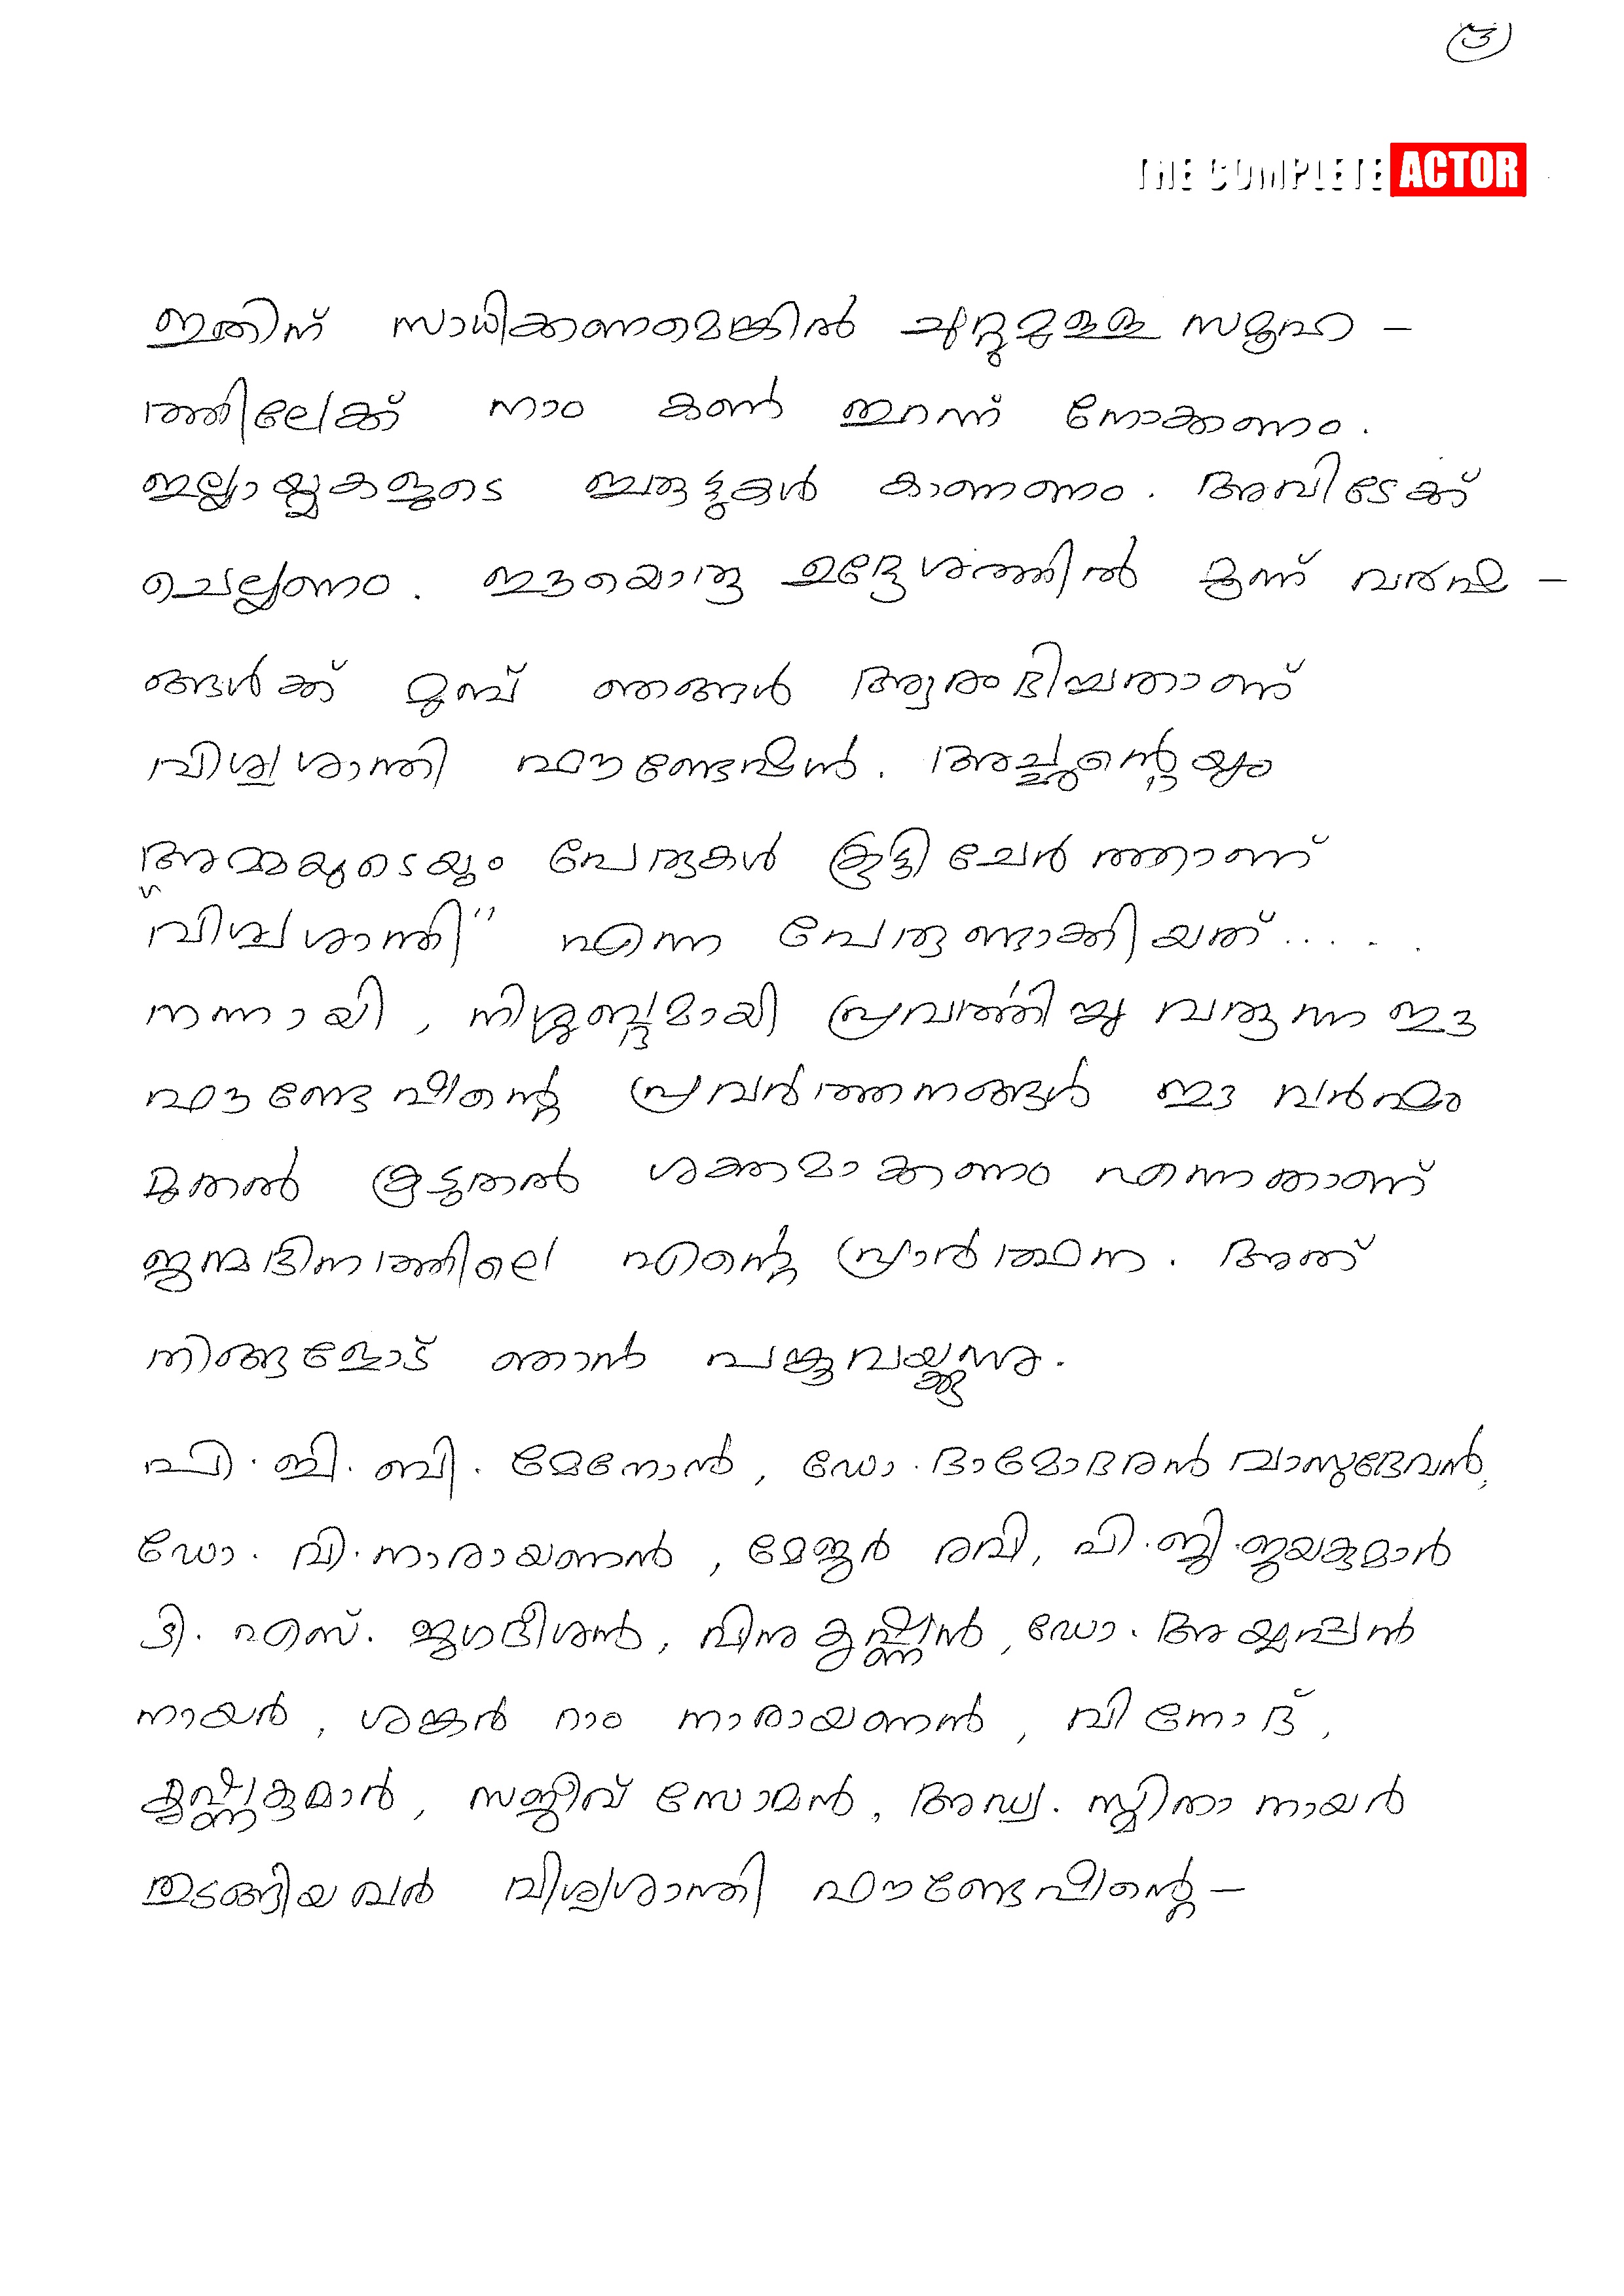 3
THE COMPLETE ACTOR
ഇതിന് സാധിക്കണമെങ്കിൽ ചുറ്റുമുള്ള സമൂഹ-
ത്തിലേക്ക് നാം കൺ തുറന്ന് നോക്കണം.
ഇല്ലായ്മകളുടെ ഇരുട്ടുകൾ കാണണം. അവിടേക്ക്
ചെല്ലണം. ഈയൊരു ഉദ്ദേശത്തിൽ മൂന്ന് വർഷ-
ങ്ങൾക്ക് മുമ്പ് ഞങ്ങൾ ആരംഭിച്ചതാണ്
വിശ്വശാന്തി ഫൗണ്ടേഷൻ. അച്ഛന്റെയും
അമ്മയുടെയും പേരുകൾ കൂട്ടിചേർത്താണ്
"വിശ്വശാന്തി" എന്ന പേരുണ്ടാക്കിയത്.....
നന്നായി, നിശ്ശബ്ദമായി പ്രവർത്തിച്ചു വരുന്ന ഈ
ഫൗണ്ടേഷിന്റെ പ്രവർത്തനങ്ങൾ ഈ വർഷം
മുതൽ കൂടുതൽ ശക്തമാക്കണം എന്നതാണ്
ജന്മദിനത്തിലെ എന്റെ പ്രാർത്ഥന. അത്
നിങ്ങളോട് ഞാൻ പങ്കുവയ്ക്കുന്നു.
പി.ഇ.ബി. മേനോൻ, ഡോ.ദാമോദരൻ വാസുദേവൻ,
ഡോ. വി.നാരായണൻ, മേജർ രവി, പി.ജി.ജയകുമാർ
ടി. എസ്. ജഗദീശൻ, വിനു കൃഷ്ണൻ, ഡോ. അയ്യപ്പൻ
നായർ, ശങ്കർ റാം നാരായണൻ, വിനോദ്,
കൃഷ്ണകുമാർ, സജീവ് സോമൻ, അഡ്വ. സ്മിതാ നായർ
തുടങ്ങിയവർ വിശ്വശാന്തി ഫൗണ്ടേഷിന്റെ-